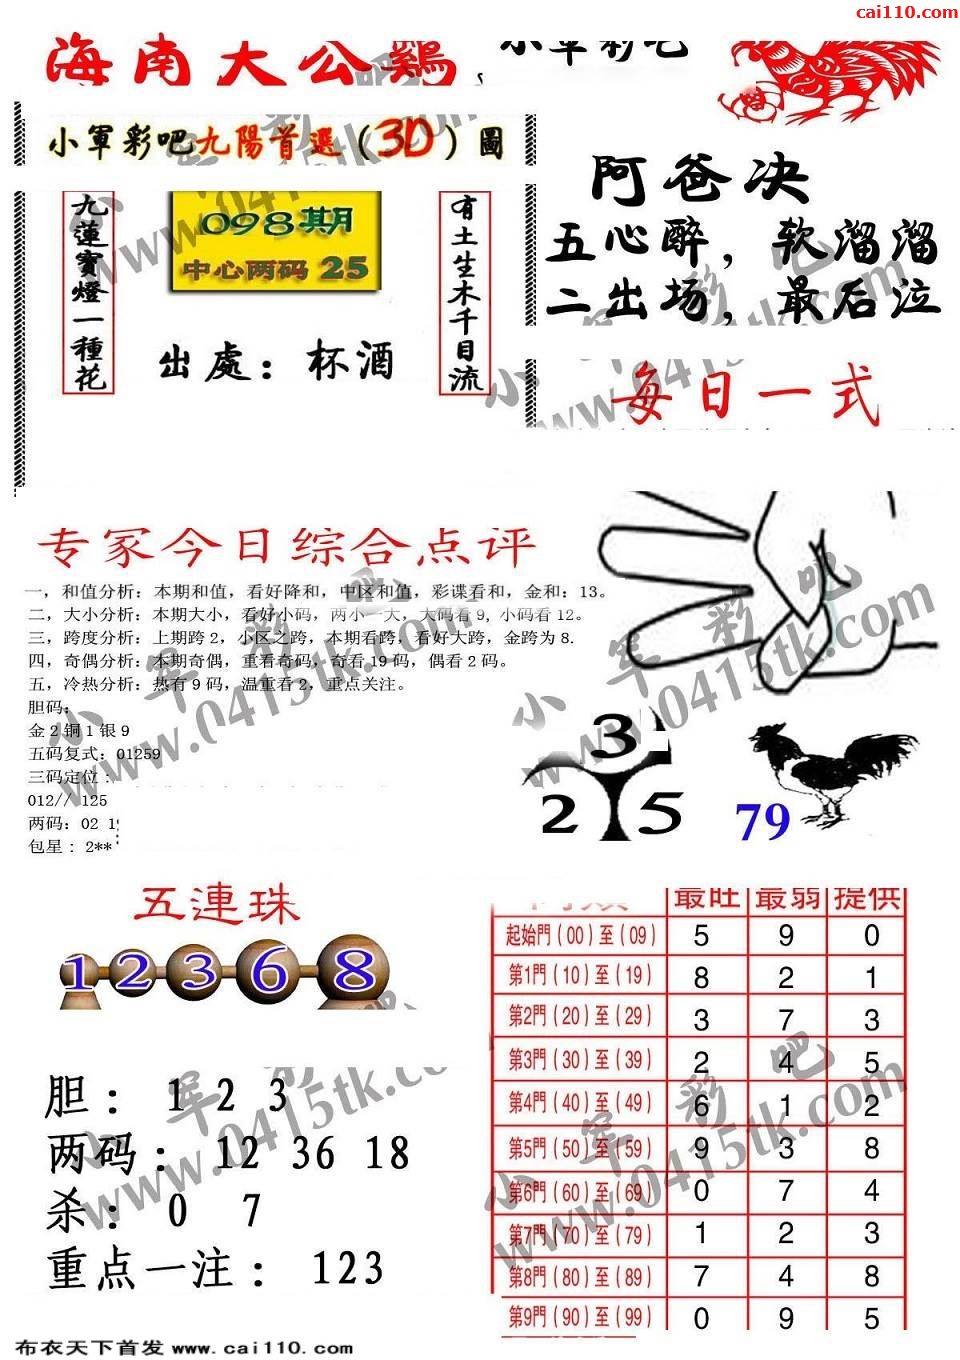 cai110.com
海南大公鷄
小軍彩吧
小軍彩吧九陽首選（3D）圖
九蓮寶燈一種花
098期
中心两码 25
有土生木千目流
出處：杯酒
阿爸决
五心醉，软溜溜
二出场，最后泣
每日一式
专家今日综合点评
一，和值分析：本期和值，看好降和，中区和值，彩谍看和，金和：13。
二，大小分析：本期大小，看好小码，两小一大，大码看9，小码看12。
三，跨度分析：上期跨2，小区之跨，本期看跨，看好大跨，金跨为8.
四，奇偶分析：本期奇偶，重看奇码，奇看19码，偶看2码。
五，冷热分析：热有9码，温重看2，重点关注。
胆码：
金2铜1银9
五码复式：01259
三码定位：
012// 125
两码：02 19
包星：2**
3
2 5
79
五連珠
1 2 3 6 8
胆： 1 2 3
两码： 12 36 18
杀： 0 7
重点一注： 123
最旺 最弱 提供
起始門（00）至（09） 5 9 0
第1門（10）至（19） 8 2 1
第2門（20）至（29） 3 7 3
第3門（30）至（39） 2 4 5
第4門（40）至（49） 6 1 2
第5門（50）至（59） 9 3 8
第6門（60）至（69） 0 7 4
第7門（70）至（79） 1 2 3
第8門（80）至（89） 7 4 8
第9門（90）至（99） 0 9 5
小军彩吧
www.0415tk.com
布衣天下首发 www.cai110.com